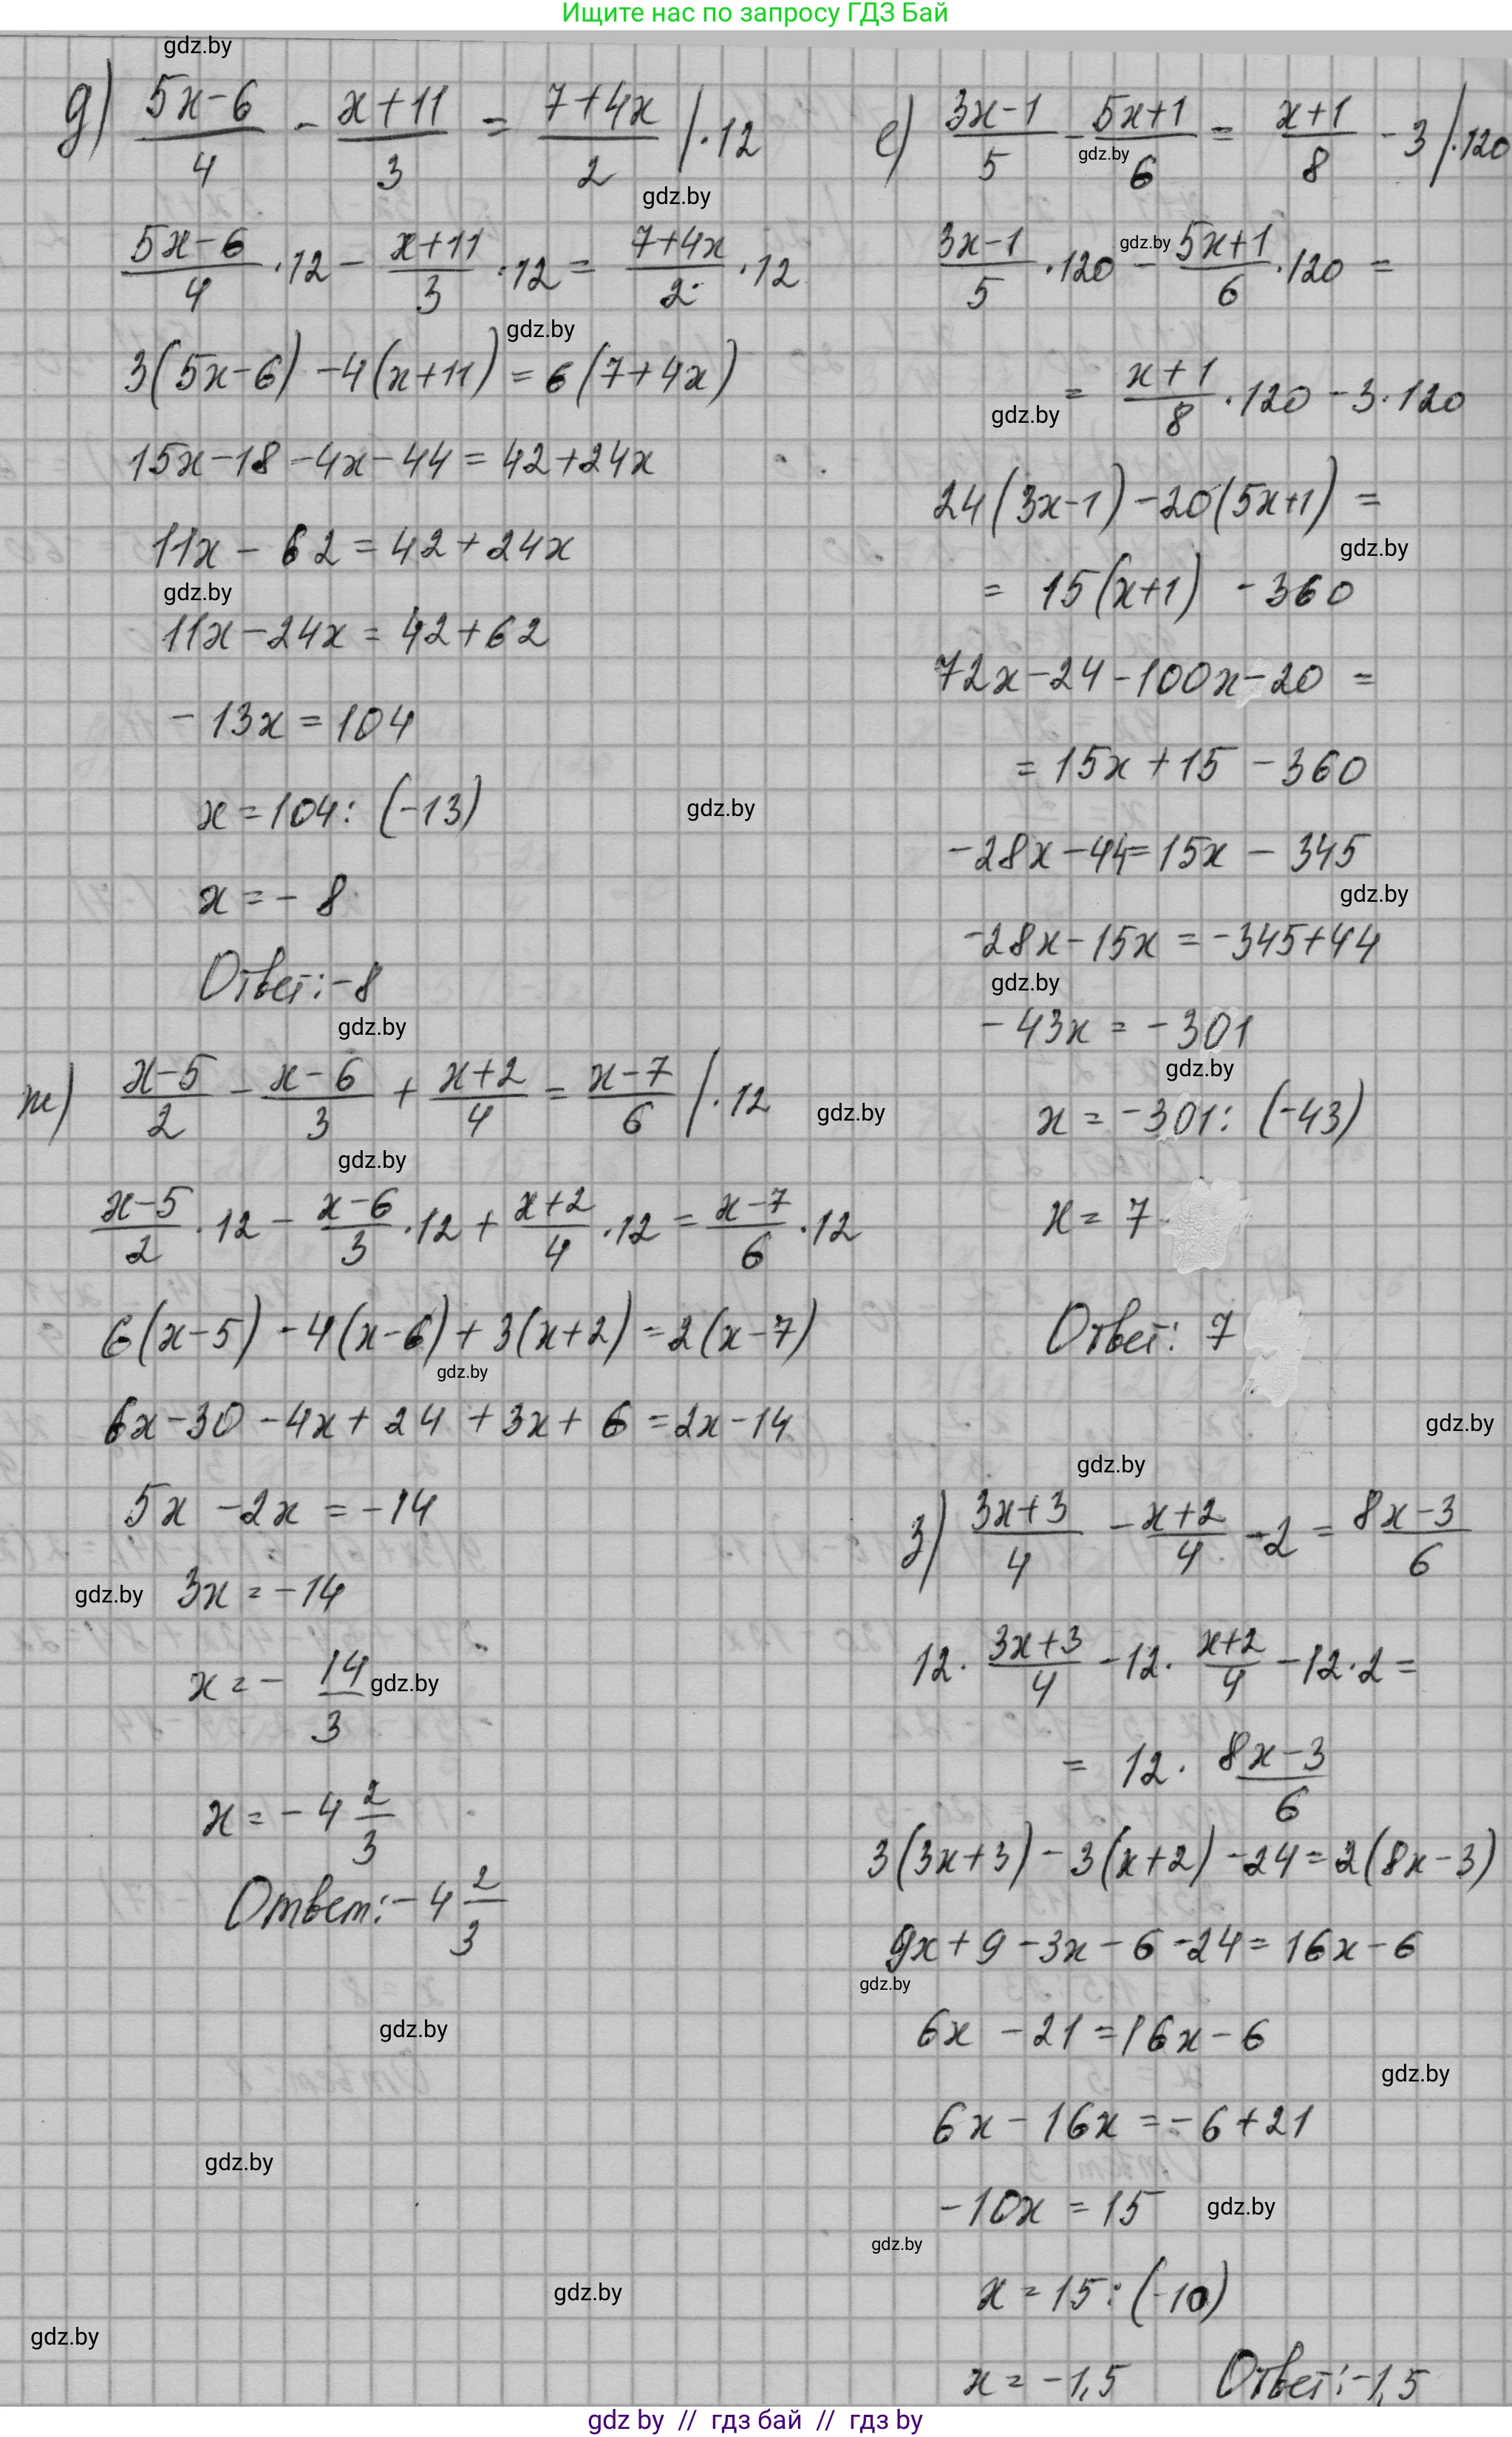 Ищите нас по запросу ГДЗ Бай
gdz.by
д) (5x-6)/4 - (x+11)/3 = (7+4x)/2 |·12
gdz.by
(5x-6)/4 ·12 - (x+11)/3 ·12 = (7+4x)/2 ·12
gdz.by
3(5x-6) -4(x+11) = 6(7+4x)
15x-18-4x-44 = 42+24x
11x - 62 = 42+24x
gdz.by
11x-24x = 42+62
-13x = 104
x = 104: (-13)
gdz.by
x = - 8
Ответ: -8
gdz.by
ж) (x-5)/2 - (x-6)/3 + (x+2)/4 = (x-7)/6 |·12
gdz.by
gdz.by
(x-5)/2 ·12 - (x-6)/3 ·12 + (x+2)/4 ·12 = (x-7)/6 ·12
6(x-5) -4(x-6) + 3(x+2) = 2(x-7)
gdz.by
6x-30 -4x+ 24 + 3x+ 6 = 2x-14
5x -2x = -14
gdz.by
3x = -14
x = - 14/3
gdz.by
x = - 4 2/3
Ответ: - 4 2/3
gdz.by
gdz.by
gdz.by
gdz.by
е) (3x-1)/5 - (5x+1)/6 = (x+1)/8 - 3 |·120
gdz.by
(3x-1)/5 ·120 - (5x+1)/6 ·120 =
gdz.by
= (x+1)/8 ·120 -3·120
gdz.by
24(3x-1) -20(5x+1) =
gdz.by
= 15(x+1) - 360
72x-24-100x-20 =
= 15x +15 - 360
-28x-44=15x - 345
gdz.by
-28x-15x = -345+44
gdz.by
-43x = -301
gdz.by
x = -301: (-43)
x = 7
Ответ: 7
gdz.by
gdz.by
з) (3x+3)/4 - (x+2)/4 -2 = (8x-3)/6
12· (3x+3)/4 -12· (x+2)/4 -12·2 =
= 12· (8x-3)/6
3(3x+3) - 3(x+2) -24 = 2(8x-3)
9x+9-3x-6-24= 16x-6
gdz.by
6x -21 = 16x-6
gdz.by
6x - 16x = -6+21
-10x = 15
gdz.by
gdz.by
x = 15:(-10)
x = -1,5 Ответ: -1,5
gdz by // гдз бай // гдз by